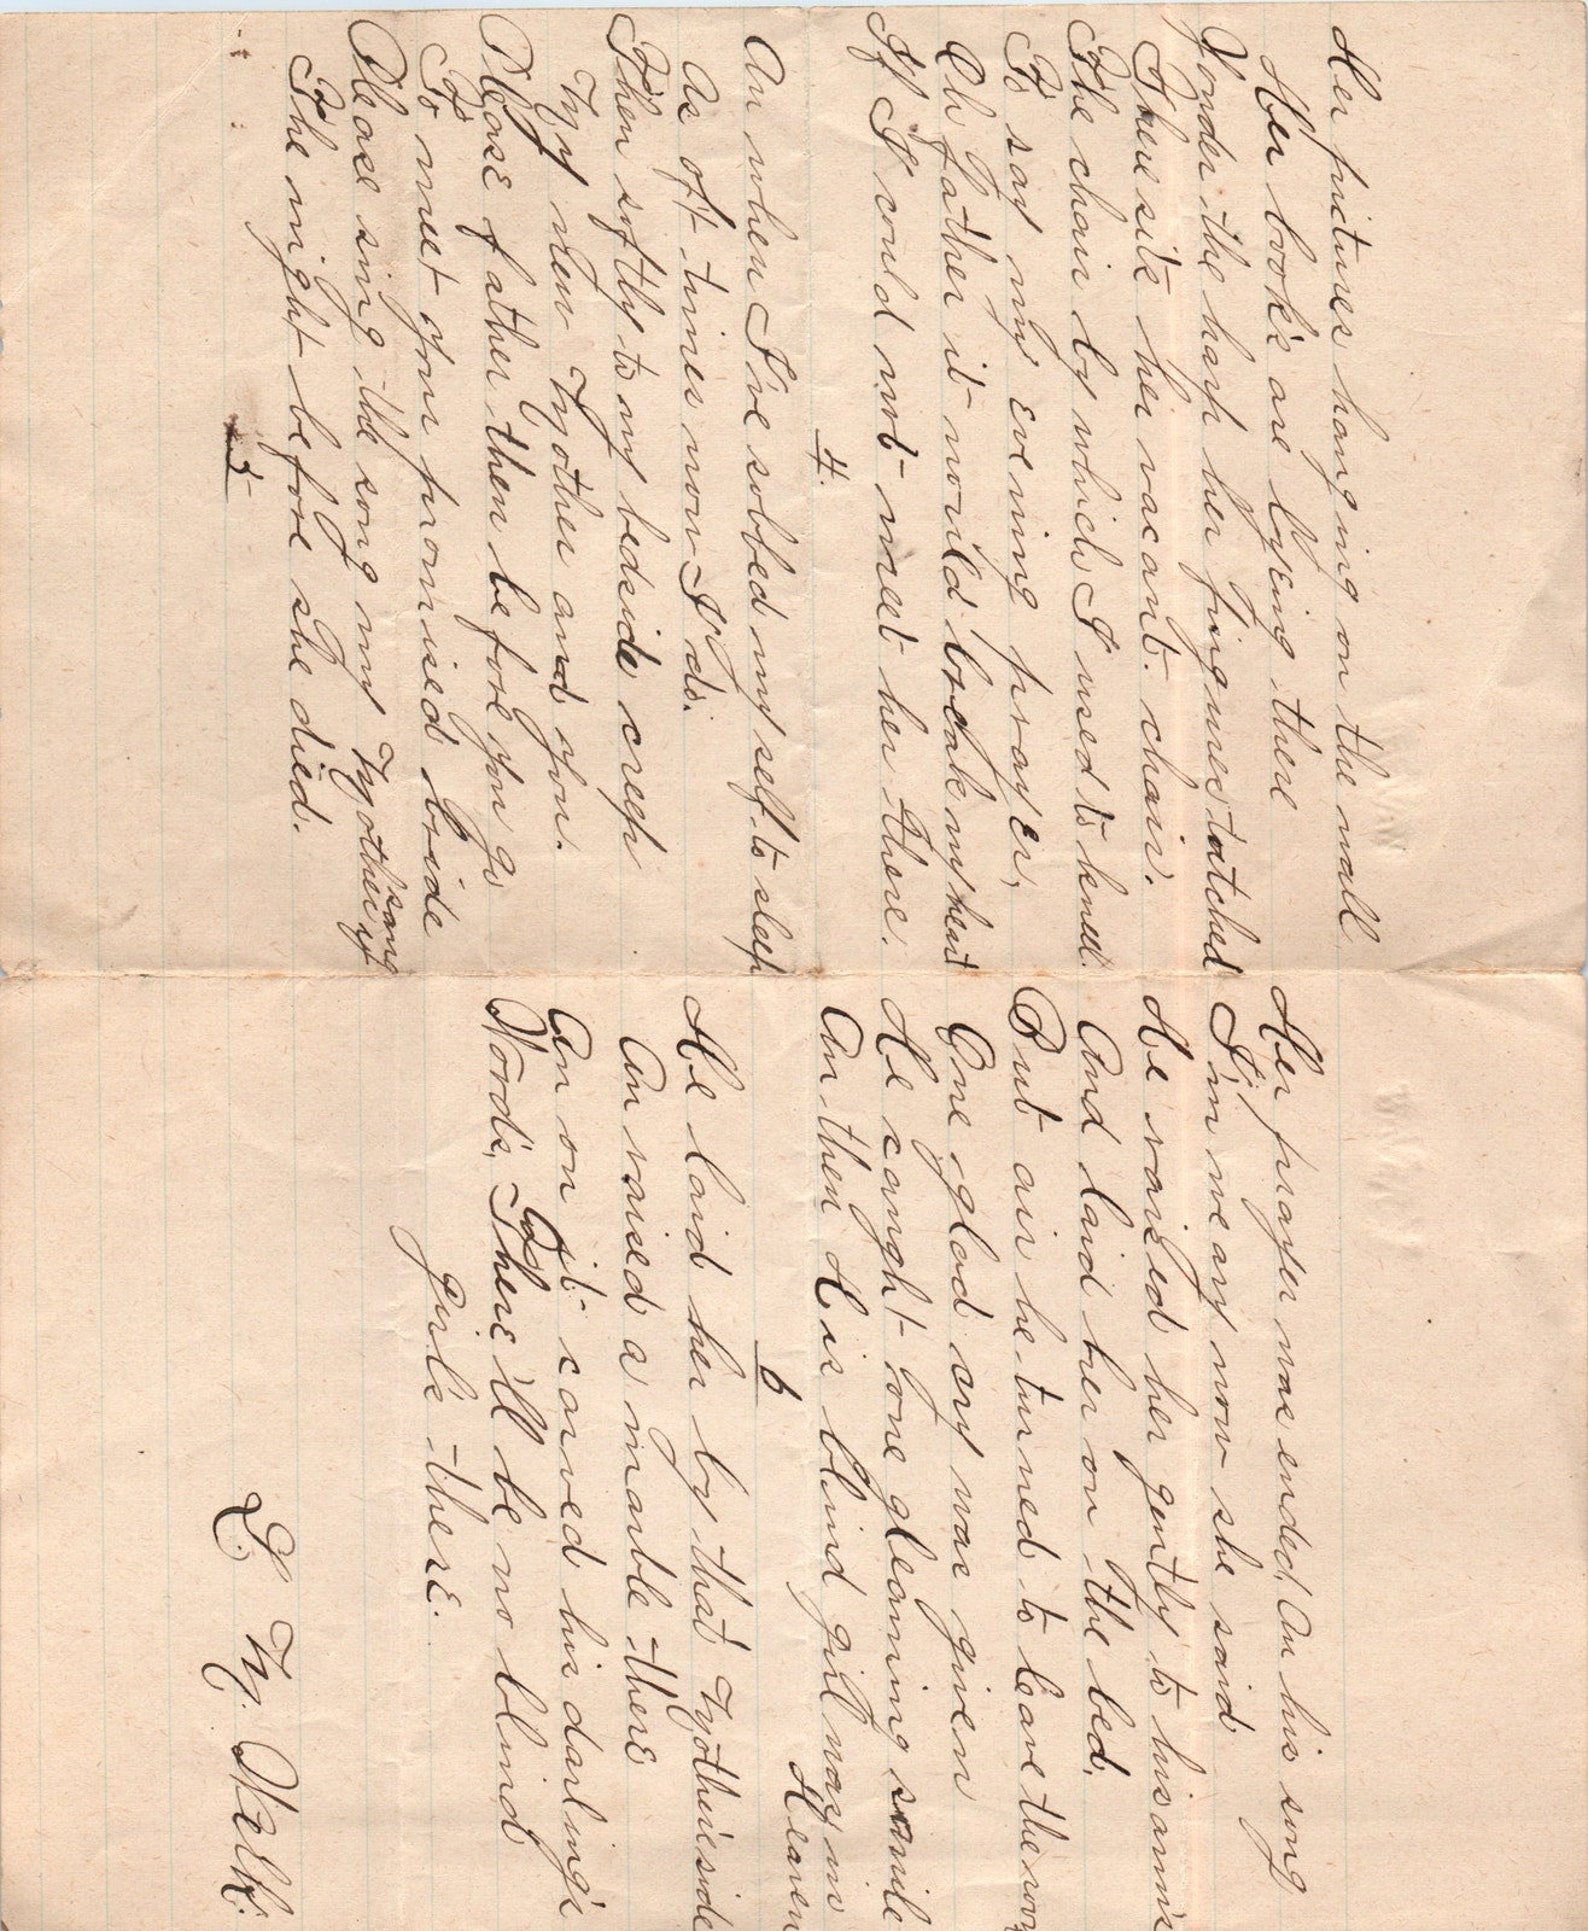 Her pictures hanging on the wall
Her book's are lyeing there
Yonder the harp her fingures tatched
There sits her vacant chair.
The chair by which I used to kneel.
To say my evening prayer,
Oh father it would break my heart
If I could not meet her there.
4.
An when I've sobbed my self to sleep
As oft times now I do.
Then softly to my bedside creep
My new Mother and you.
Please father then before you go
To meet your promised bride
Please sing the song my Mother sang
The night before she died.
5
Her prayer was ended, An his song
I'm weary now she said
He raised her gently to his arm's
And laid her on the bed.
But air he turned to leave the room
One glad cry was given
He caught one gleaming smile
An then His blind girl was in
Heaven
6
He laid her by that Mother's side
An raised a marble there
An on it carved his darling's
Words, There'll be no blind
girls there.
L. M. Welk.